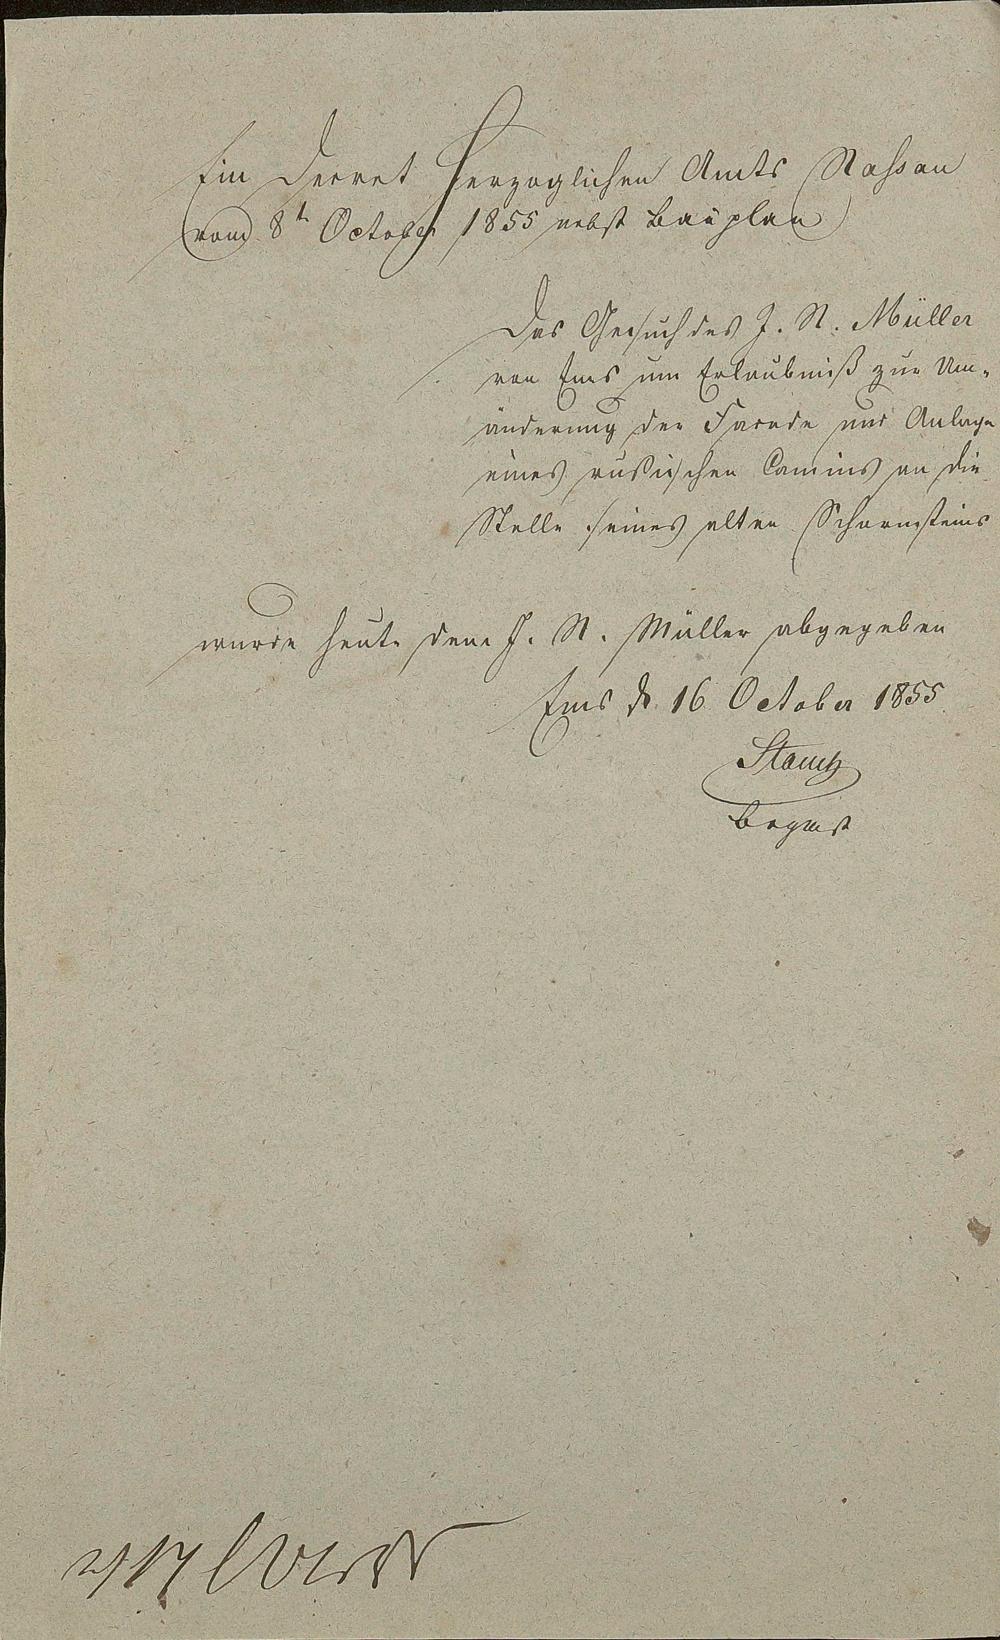 Ein Decret Herzoglichen Amts Nassau
vom 8t October 1855 nebst Bauplan
Das Gesuch des J. N. Müller
von Ems um Erlaubniß zur Um-
änderung der Facade und Anlage
eines rusischen Camins an die
Stelle seines alten Schornsteins
wurde heute dem J. N. Müller abgegeben
Ems d 16 October 1855